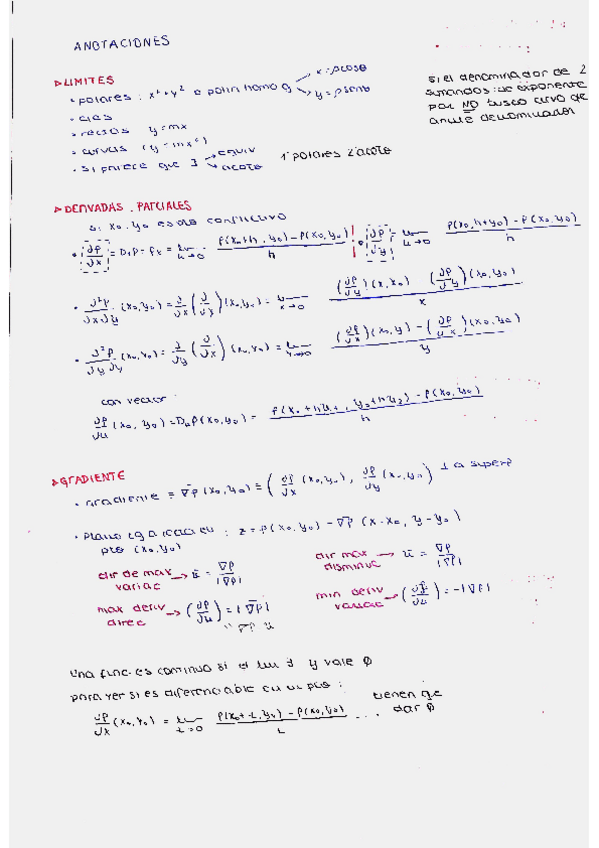 ANOTACIONES
▷LIMITES
• polares : x²+y² o polin homog → x=ρcosθ
→ y=ρsenθ
• ejes
• rectas y=mx
• curvas (y=mxⁿ)
• si parece que ∃ → equiv
→ acoto
1º polares 2º acoto
si el denominador de 2
sumandos : de exponente
par NO busco curva de
anule denominador
▷DERIVADAS PARCIALES
si x₀, y₀ es do conflictivo
• ∂f/∂x = D₁f = fx = lim h→0 (f(x₀+h, y₀) - f(x₀, y₀))/h • ∂f/∂y = lim h→0 (f(x₀, h+y₀) - f(x₀, y₀))/h
• ∂²f/∂x∂y (x₀, y₀) = ∂/∂x (∂/∂y) (x₀, y₀) = lim x→0 ((∂f/∂y)(x, y₀) - (∂f/∂y)(x₀, y₀))/x
• ∂²f/∂y∂y (x₀, y₀) = ∂/∂y (∂/∂x) (x₀, y₀) = lim y→0 ((∂f/∂x)(x₀, y) - (∂f/∂x)(x₀, y₀))/y
con vector:
∂f/∂u (x₀, y₀) = Duf(x₀, y₀) = (f(x₀+hu₁, y₀+hu₂) - f(x₀, y₀))/h
▷GRADIENTE
• Gradiente = ∇f (x₀, y₀) = (∂f/∂x (x₀, y₀), ∂f/∂y (x₀, y₀)) ⊥ a superf
• Plano : z = f(x₀, y₀) - ∇f (x-x₀, y-y₀)
pto (x₀, y₀)
dir de max variac → ū = ∇f/|∇f|
dir max disminuc → ū = ∇f/|∇f|
max deriv direc → (∂f/∂u) = |∇f|
min deriv variac → (∂f/∂u) = -|∇f|
"∇f ū
Una func. es continua si el lim ∃ y vale ∅
para ver si es diferenciable en un pto :
∂f/∂x (x₀, y₀) = lim t→0 (f(x₀+t, y₀) - f(x₀, y₀))/t ... tienen que
dar ∅